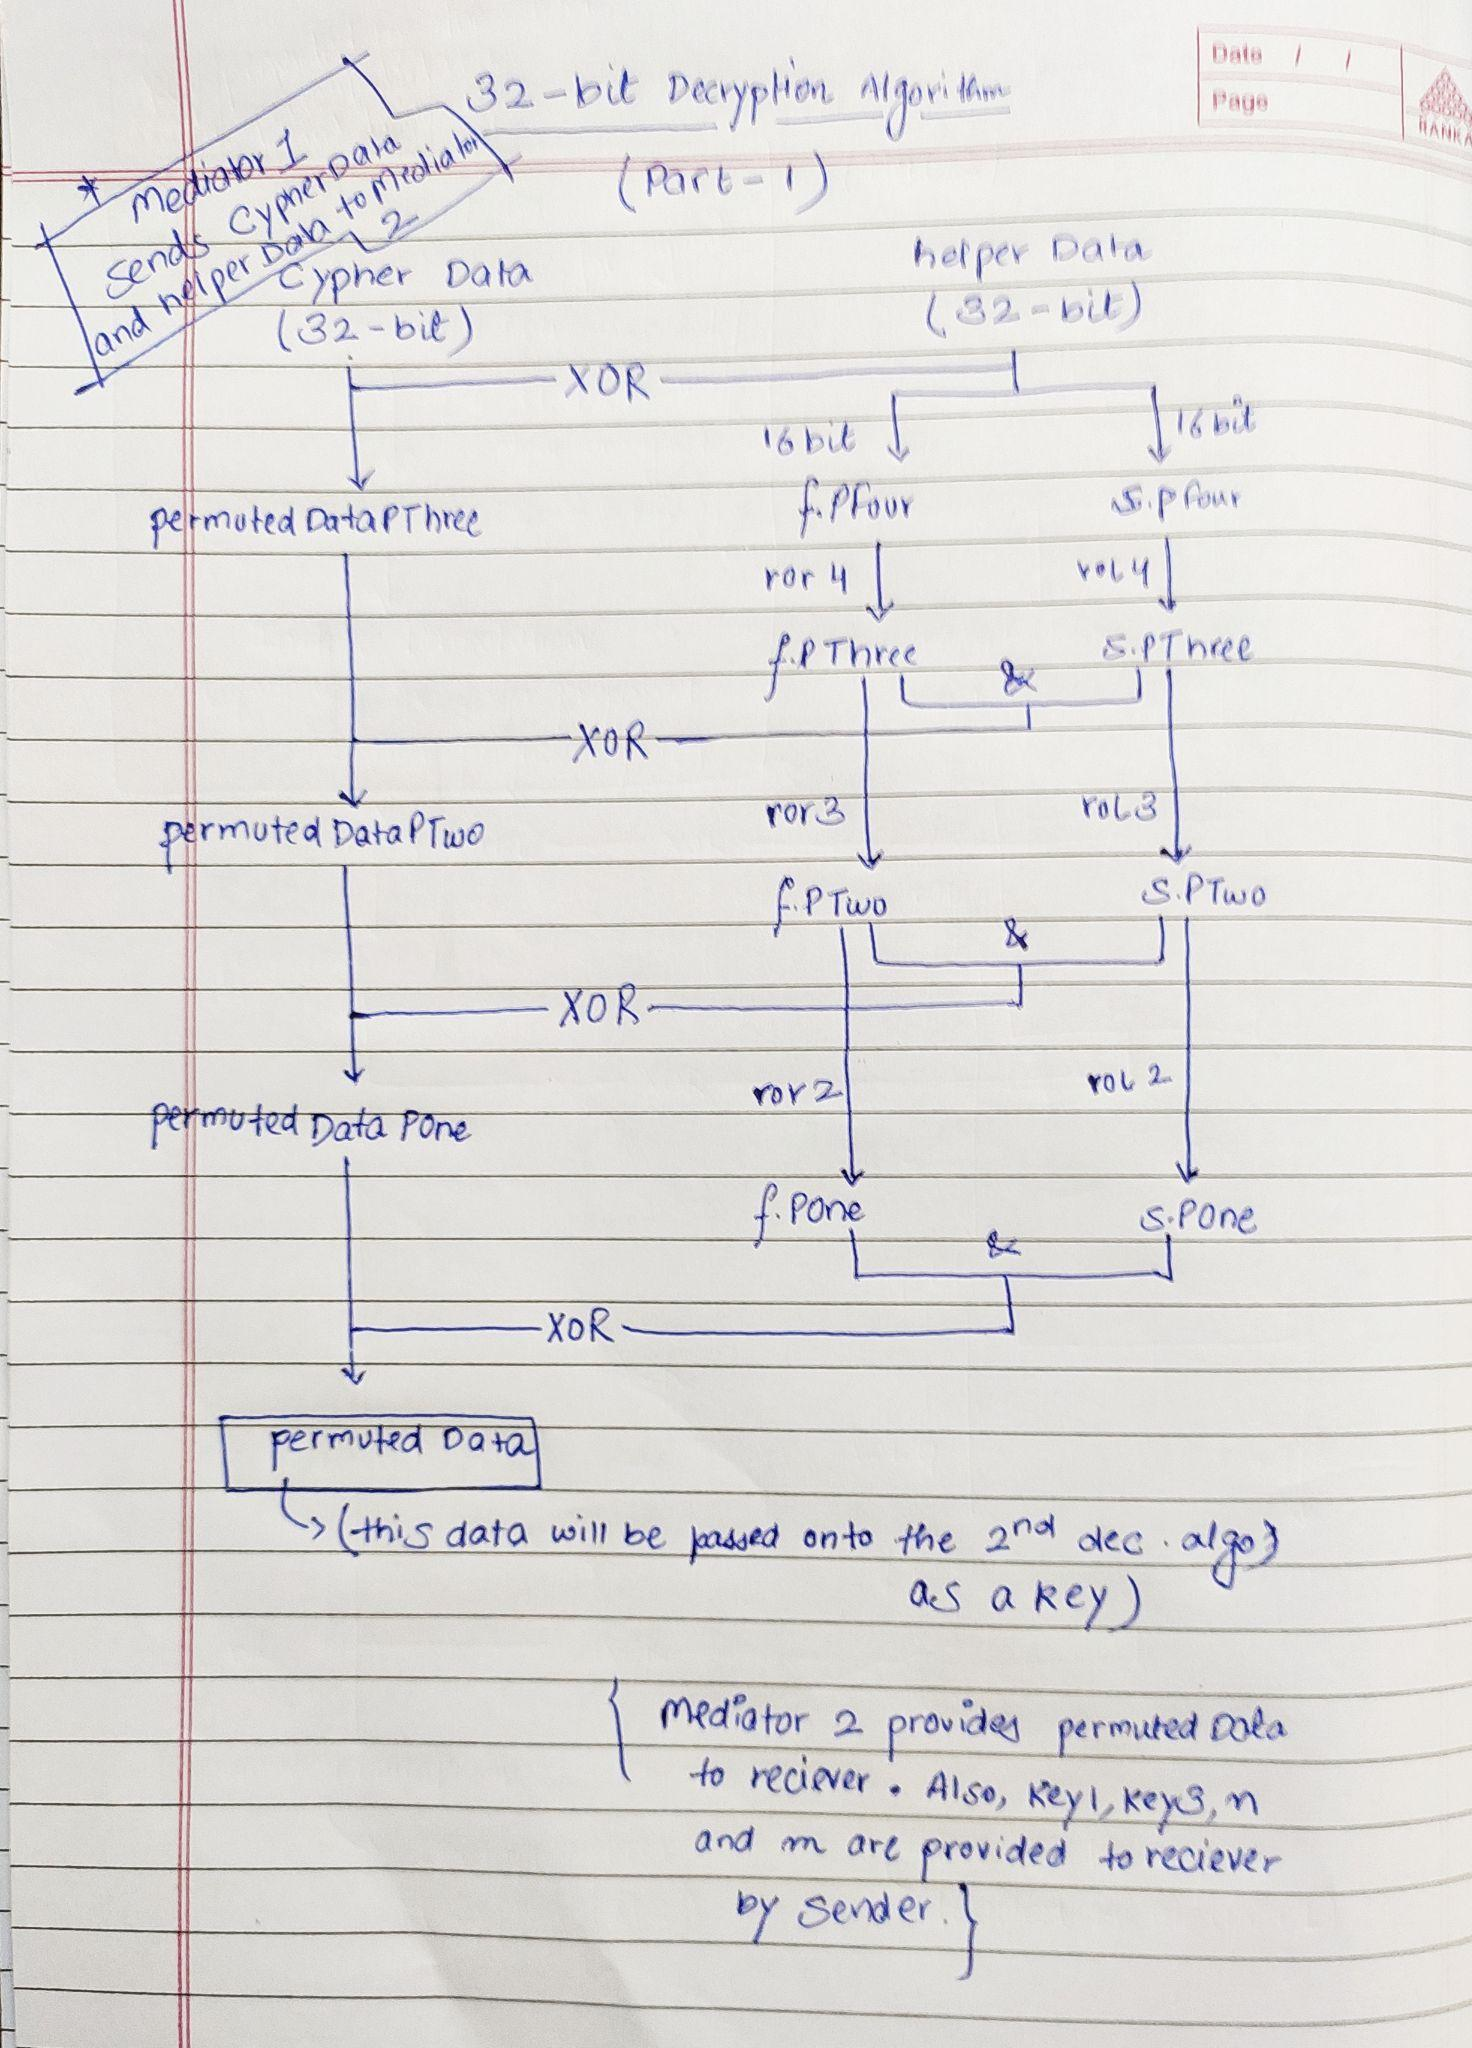 Date / /
Page
RANKA
32-bit Decryption Algorithm
(Part-1)
* Mediator 1
sends CypherData
and helper Data to Mediator
2
Cypher Data
(32-bit)
helper Data
(32-bit)
XOR
16 bit
16 bit
permuted DataPThree
f.PFour
s.pfour
ror 4
rol 4
f.PThree
&
s.PThree
XOR
ror 3
rol 3
permuted DataPTwo
f.PTwo
&
s.PTwo
XOR
ror 2
rol 2
permuted Data POne
f.POne
&
s.POne
XOR
permuted Data
(this data will be passed onto the 2nd dec. algo}
as a key)
{ Mediator 2 provides permuted Data
to reciever. Also, Key1, Key3, n
and m are provided to reciever
by Sender. }